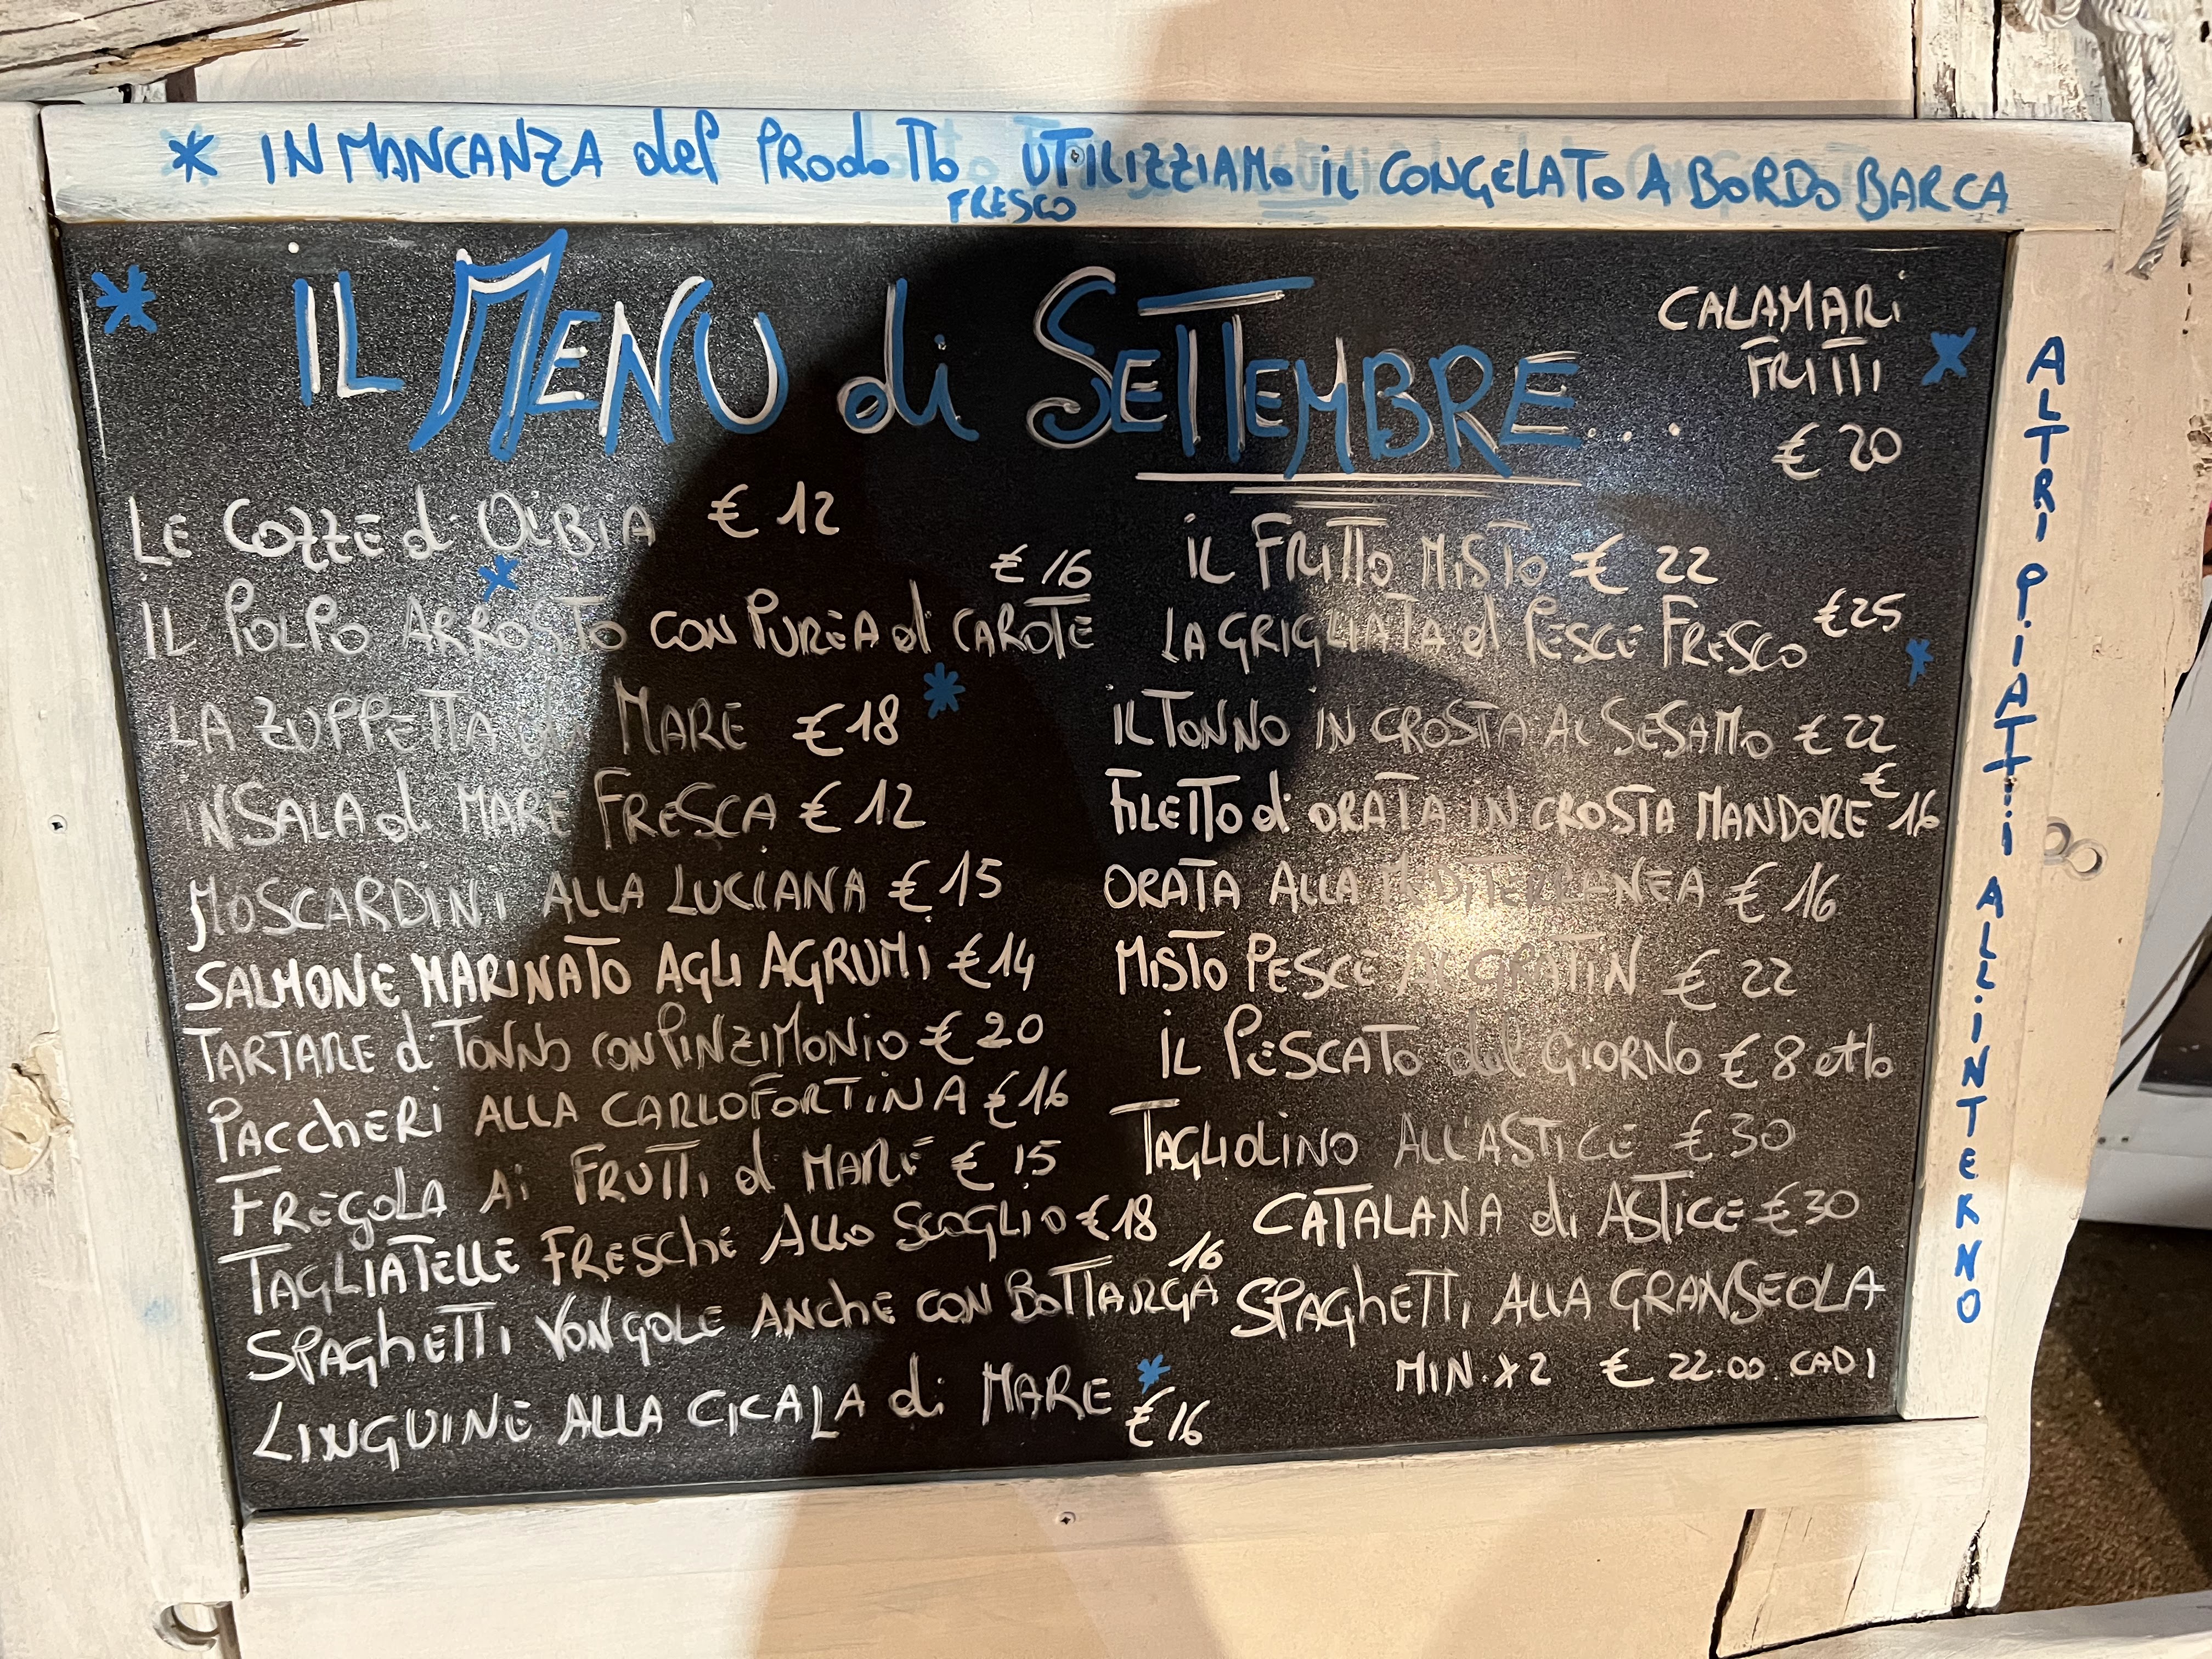 * IN MANCANZA del PRodoTTo FRESCO UTILIZZIAMo iL CONGELATo A BoRDo BARCA
* IL MENU di SETTEMBRE....
CALAMARi
FRITTI *
€ 20
LE COZZE di OlBIA € 12
*
IL POLPO ARROSTO CON PUREA di CAROTE € 16
LA ZUPPETTA di MARE € 18 *
INSALA di MARE FRESCA € 12
MOSCARDINI ALLA LUCIANA € 15
SALMONE MARINATO AGLI AGRUMI € 14
TARTARE di TONNO CON PINZIMONIO € 20
PACChERI ALLA CARLOFORTINA € 16
FREGOLA Ai FRUTTI di MARE € 15
TAGLIATELLE FRESChE ALLO SCOGLIO € 18
SPAGhETTI VONGOLE ANChE CON BOTTARGA 16
LINGUINE ALLA CICALA di MARE * € 16
iL FRITTO MISTO € 22
LA GRIGLIATA di PESCE FRESCO € 25
*
IL TONNO IN CROSTA Al SESAMO € 22
FILETTO di ORATA IN CROSTA MANDORE € 16
ORATA ALLA MEDITERRANEA € 16
MISTO PESCE Al GRATIN € 22
IL PESCATO del GIORNO € 8 etto
TAGLIOLINO ALL'ASTICE € 30
CATALANA di ASTICE € 30
SPAGhETTI ALLA GRANSEOLA
MIN. x 2 € 22.00. CADI
ALTRI PIATTI ALL'INTERNO